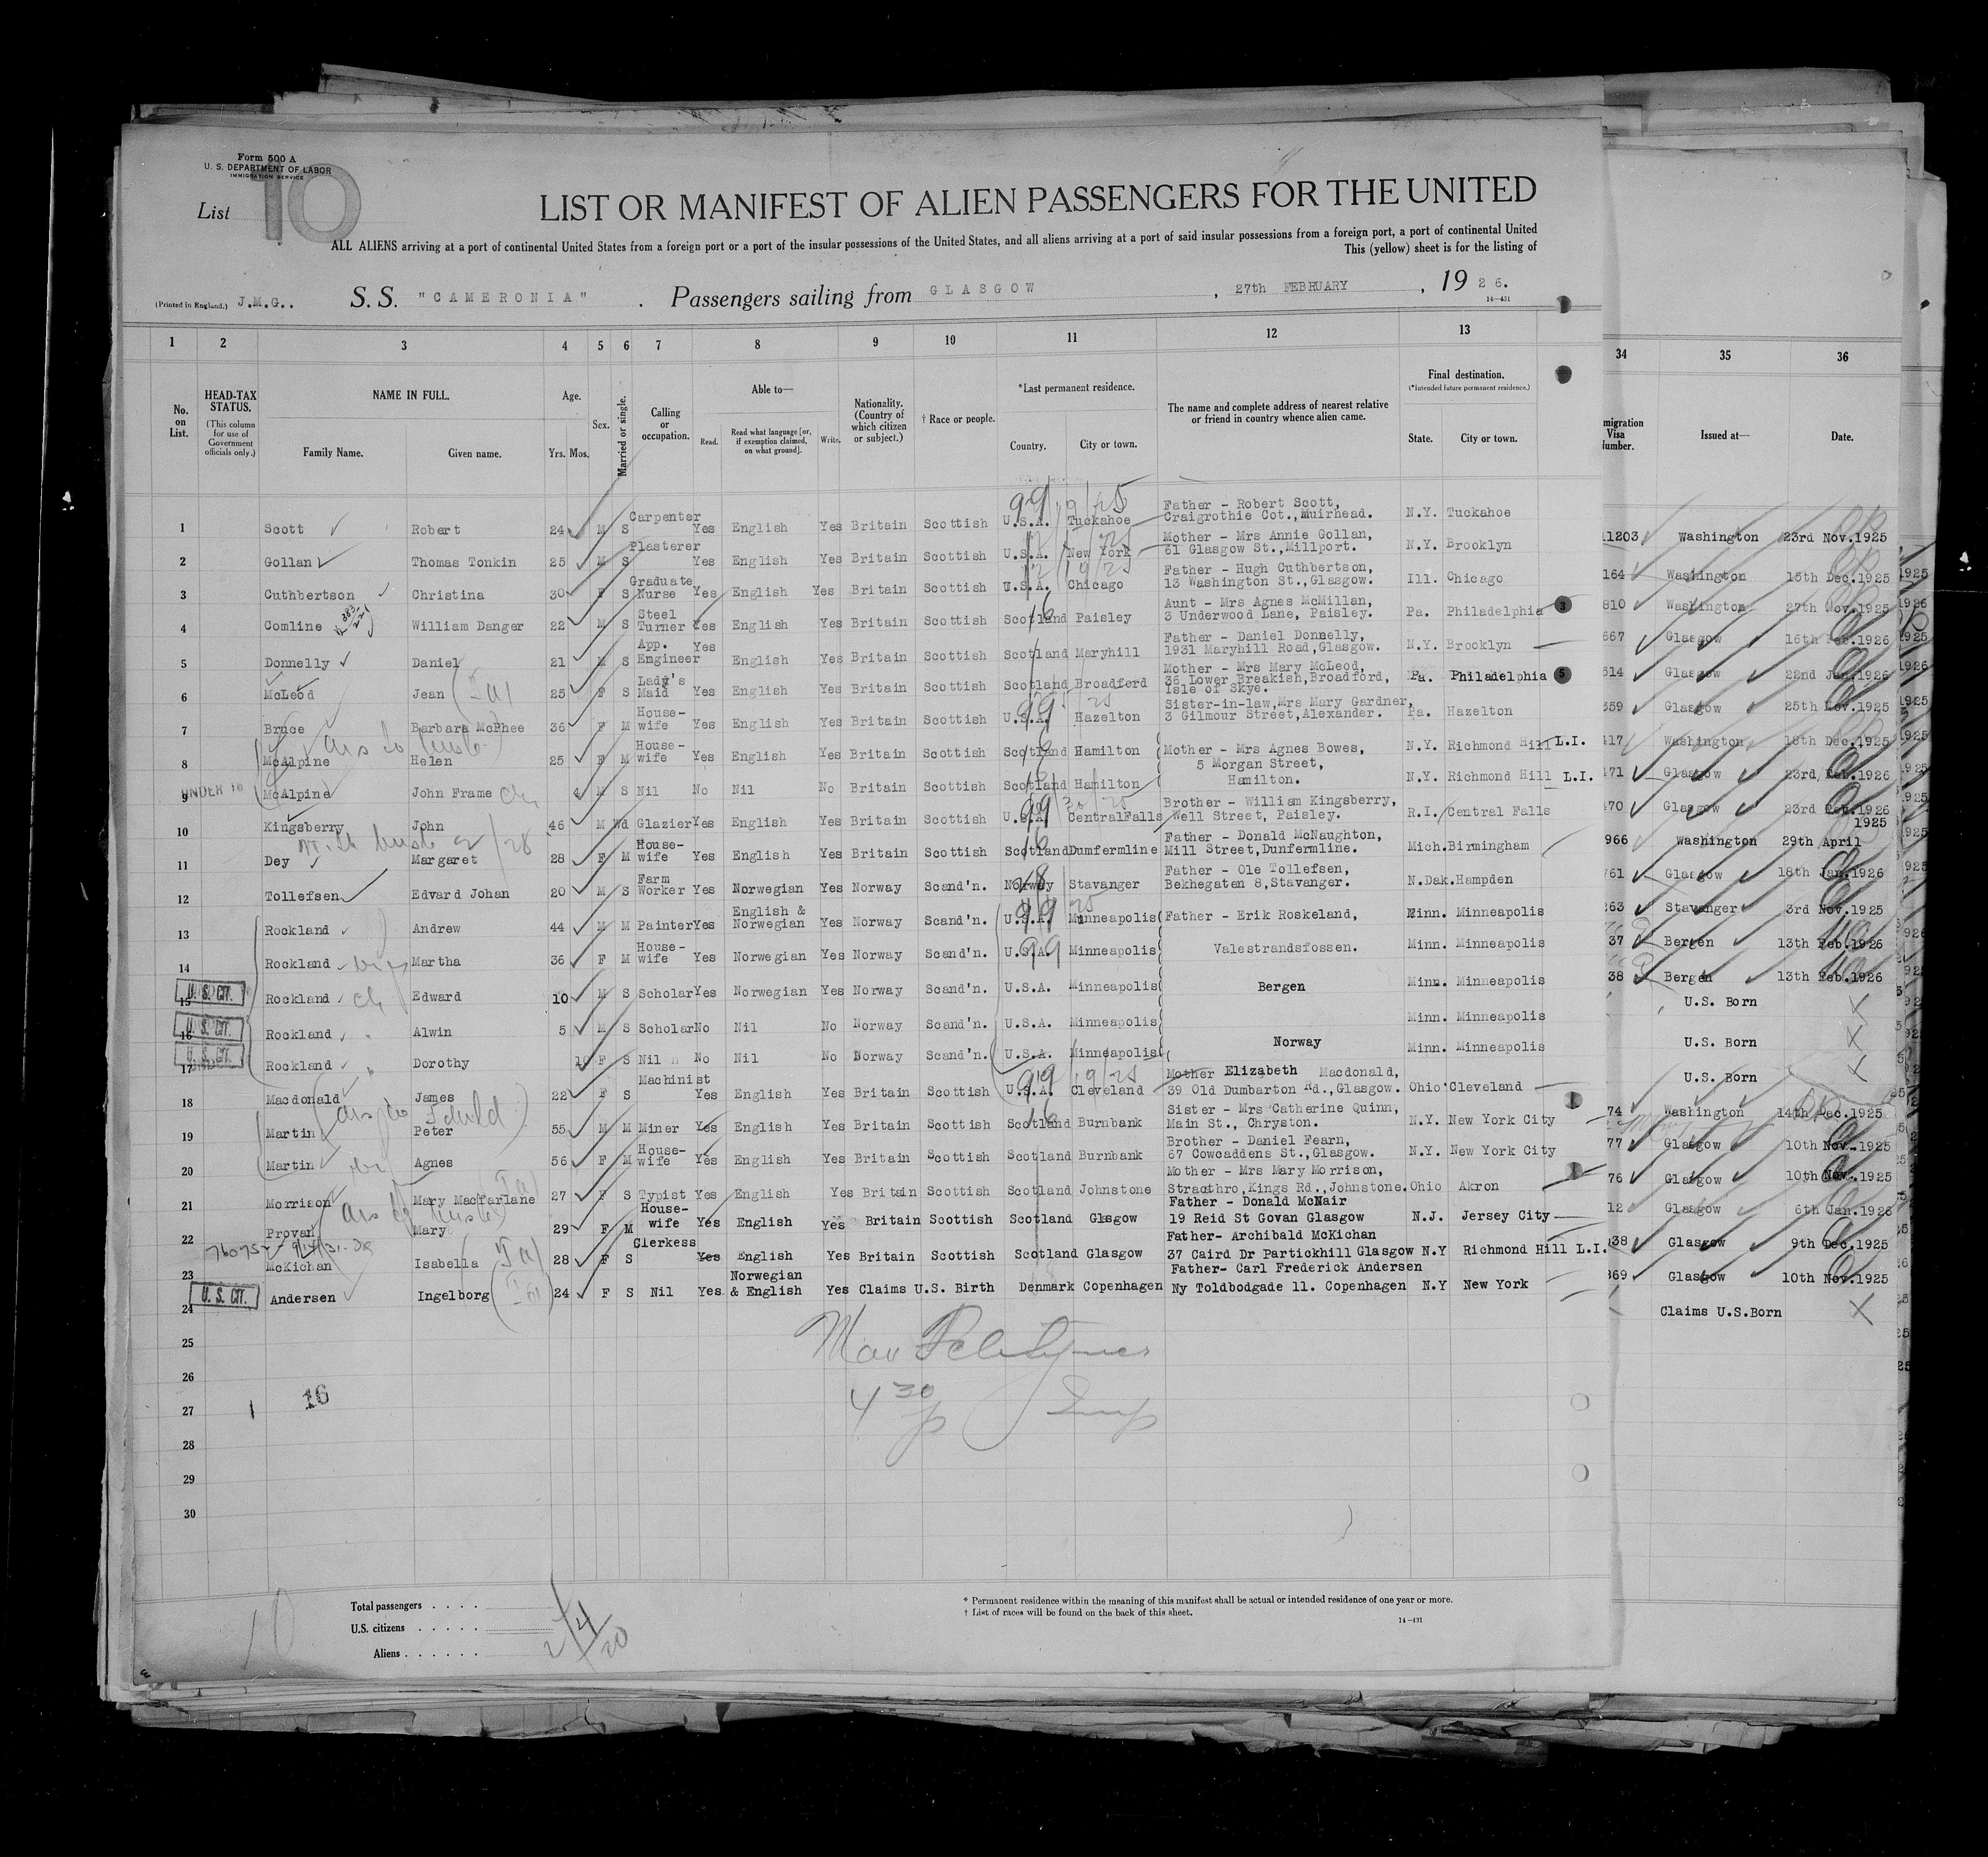 Form 500 A
U. S. DEPARTMENT OF LABOR
IMMIGRATION SERVICE
List 10
LIST OR MANIFEST OF ALIEN PASSENGERS FOR THE UNITED
ALL ALIENS arriving at a port of continental United States from a foreign port or a port of the insular possessions of the United States, and all aliens arriving at a port of said insular possessions from a foreign port, a port of continental United
This (yellow) sheet is for the listing of
(Printed in England.) J.M.G.. S. S. "CAMERONIA" . Passengers sailing from GLASGOW , 27th FEBRUARY , 1926.
14-431
1 2 3 4 5 6 7 8 9 10 11 12 13 34 35 36
No. on List.
HEAD-TAX STATUS.
(This column for use of Government officials only.)
NAME IN FULL.
Family Name. Given name.
Age.
Yrs. Mos.
Sex.
Married or single.
Calling or occupation.
Able to—
Read. Read what language [or, if exemption claimed, on what ground]. Write.
Nationality. (Country of which citizen or subject.)
† Race or people.
*Last permanent residence.
Country. City or town.
The name and complete address of nearest relative or friend in country whence alien came.
Final destination.
(*Intended future permanent residence.)
State. City or town.
migration Visa umber.
Issued at—
Date.
1 Scott Robert 24 M S Carpenter Yes English Yes Britain Scottish U.S.A. Tuckahoe Father - Robert Scott, Craigrothie Cot.,Muirhead. N.Y. Tuckahoe
2 Gollan Thomas Tonkin 25 M S Plasterer Yes English Yes Britain Scottish U.S.A. New York Mother - Mrs Annie Gollan, 31 Glasgow St.,Millport. N.Y. Brooklyn
3 Cuthbertson Christina 30 F S Graduate Nurse Yes English Yes Britain Scottish U.S.A. Chicago Father - Hugh Cuthbertson, 13 Washington St.,Glasgow. Ill. Chicago
4 Comline William Danger 22 M S Steel Turner Yes English Yes Britain Scottish Scotland Paisley Aunt - Mrs Agnes McMillan, 3 Underwood Lane, Paisley. Pa. Philadelphia 3
5 Donnelly Daniel 21 M S App. Engineer Yes English Yes Britain Scottish Scotland Maryhill Father - Daniel Donnelly, 1931 Maryhill Road,Glasgow. N.Y. Brooklyn
6 McLeod Jean 25 F S Lady's Maid Yes English Yes Britain Scottish Scotland Broadford Mother - Mrs Mary McLeod, 36 Lower Breakish,Broadford, Isle of Skye. Pa. Philadelphia 5
7 Bruce Barbara McPhee 36 F M House-wife Yes English Yes Britain Scottish U.S.A. Hazelton Sister-in-law,Mrs Mary Gardner, 3 Gilmour Street,Alexander. Pa. Hazelton
8 McAlpine Helen 25 F M House-wife Yes English Yes Britain Scottish Scotland Hamilton Mother - Mrs Agnes Bowes, 5 Morgan Street, Hamilton. N.Y. Richmond Hill L.I.
UNDER 16
9 McAlpine John Frame 4 M S Nil No Nil No Britain Scottish Scotland Hamilton N.Y. Richmond Hill L.I.
10 Kingsberry John 46 M Wd Glazier Yes English Yes Britain Scottish U.S.A. CentralFalls Brother - William Kingsberry, Well Street, Paisley. R.I. Central Falls
11 Dey Margaret 28 F M House-wife Yes English Yes Britain Scottish Scotland Dumfermline Father - Donald McNaughton, Mill Street,Dunfermline. Mich. Birmingham
12 Tollefsen Edvard Johan 20 M S Farm Worker Yes Norwegian Yes Norway Scand'n. Norway Stavanger Father - Ole Tollefsen, Bekhegaten 8,Stavanger. N.Dak. Hampden
13 Rockland Andrew 44 M M Painter Yes English & Norwegian Yes Norway Scand'n. U.S.A. Minneapolis Father - Erik Roskeland, Minn. Minneapolis
14 Rockland Martha 36 F M House-wife Yes Norwegian Yes Norway Scand'n. U.S.A. Minneapolis Valestrandsfossen. Minn. Minneapolis
U. S. CIT. 15 Rockland Edward 10 M S Scholar Yes Norwegian Yes Norway Scand'n. U.S.A. Minneapolis Bergen Minn. Minneapolis
U. S. CIT. 16 Rockland Alwin 5 M S Scholar No Nil No Norway Scand'n. U.S.A. Minneapolis Norway Minn. Minneapolis
U. S. CIT. 17 Rockland Dorothy 10 F S Nil No Nil No Norway Scand'n. U.S.A. Minneapolis Minn. Minneapolis
18 Macdonald James 22 F S Machinist Yes English Yes Britain Scottish U.S.A. Cleveland Mother Elizabeth Macdonald, 39 Old Dumbarton Rd.,Glasgow. Ohio Cleveland
19 Martin Peter 55 M M Miner Yes English Yes Britain Scottish Scotland Burnbank Sister - Mrs Catherine Quinn, Main St., Chryston. N.Y. New York City
20 Martin Agnes 56 F M House-wife Yes English Yes Britain Scottish Scotland Burnbank Brother - Daniel Fearn, 67 Cowcaddens St.,Glasgow. N.Y. New York City
21 Morrison Mary Macfarlane 27 F S Typist Yes English Yes Britain Scottish Scotland Johnstone Mother - Mrs Mary Morrison, Stracthro,Kings Rd.,Johnstone. Ohio Akron
22 Provan Mary 29 F M House-wife Yes English Yes Britain Scottish Scotland Glasgow Father - Donald McNair 19 Reid St Govan Glasgow N.J. Jersey City
23 McKichan Isabella 28 F S Clerkess Yes English Yes Britain Scottish Scotland Glasgow Father- Archibald McKichan 37 Caird Dr Partickhill Glasgow N.Y Richmond Hill L.I.
U. S. CIT. 24 Andersen Ingelborg 24 F S Nil Yes Norwegian & English Yes Claims U.S. Birth Denmark Copenhagen Father- Carl Frederick Andersen Ny Toldbodgade 11. Copenhagen N.Y New York
25
26
27 16
28
29
30
4 30
1203 Washington 23rd Nov.1925
164 Washington 15th Dec.1925
810 Washington 27th Nov.1925
667 Glasgow 16th Feb.1926
514 Glasgow 22nd Jan.1926
359 Glasgow 25th Nov.1925
417 Washington 18th Dec.1925
471 Glasgow 23rd Feb.1926
470 Glasgow 23rd Feb.1926
966 Washington 29th April 1925
761 Glasgow 18th Jan.1926
263 Stavanger 3rd Nov.1925
37 Bergen 13th Feb.1926
38 Bergen 13th Feb.1926
U.S. Born
U.S. Born
U.S. Born
74 Washington 14th Dec.1925
77 Glasgow 10th Nov.1925
76 Glasgow 10th Nov.1925
12 Glasgow 6th Jan.1926
38 Glasgow 9th Dec.1925
369 Glasgow 10th Nov.1925
Claims U.S.Born
Total passengers . . . .
U.S. citizens . . . . .
Aliens . . . . . .
10
* Permanent residence within the meaning of this manifest shall be actual or intended residence of one year or more.
† List of races will be found on the back of this sheet.
14-431